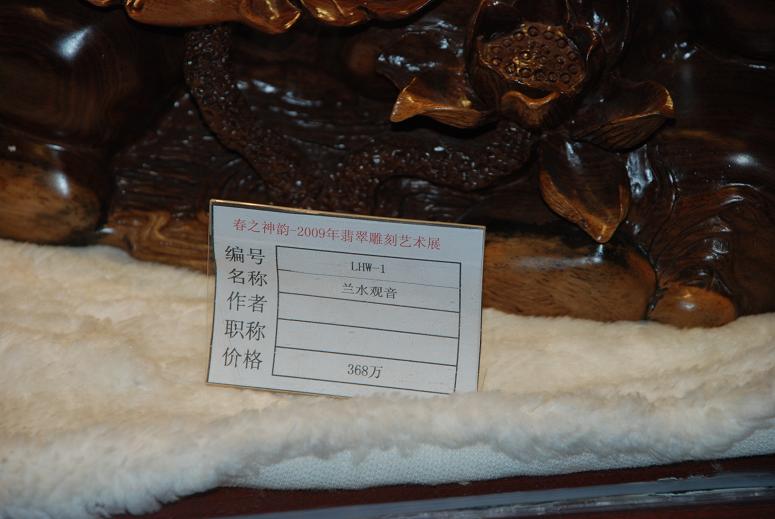 春之神韵-2009年翡翠雕刻艺术展
编号 LHW-1
名称 兰水观音
作者
职称
价格 368万